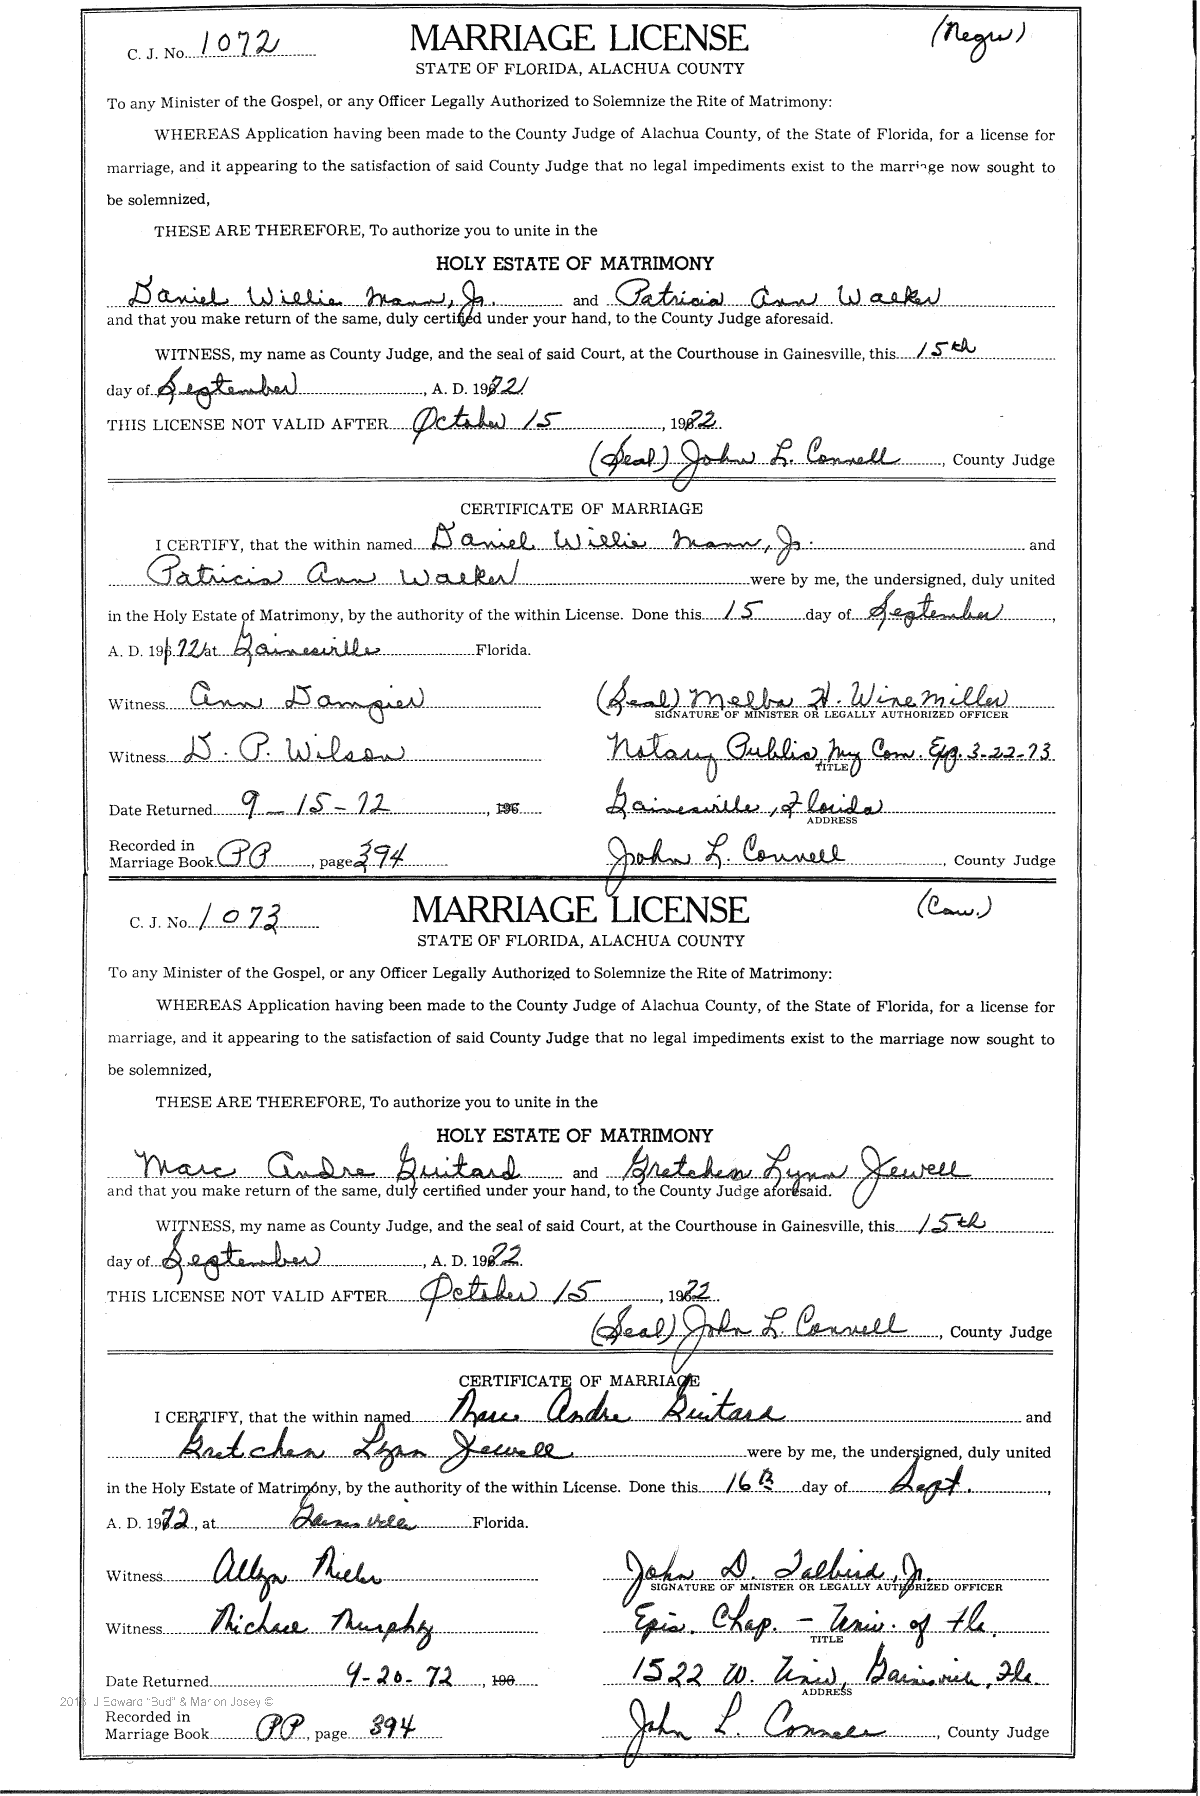 C. J. No. 1072 MARRIAGE LICENSE (Negro)
STATE OF FLORIDA, ALACHUA COUNTY
To any Minister of the Gospel, or any Officer Legally Authorized to Solemnize the Rite of Matrimony:
WHEREAS Application having been made to the County Judge of Alachua County, of the State of Florida, for a license for
marriage, and it appearing to the satisfaction of said County Judge that no legal impediments exist to the marriage now sought to
be solemnized,
THESE ARE THEREFORE, To authorize you to unite in the
HOLY ESTATE OF MATRIMONY
Daniel Willie Mann, Jr. and Patricia Ann Walker
and that you make return of the same, duly certified under your hand, to the County Judge aforesaid.
WITNESS, my name as County Judge, and the seal of said Court, at the Courthouse in Gainesville, this 15th
day of September, A. D. 1972
THIS LICENSE NOT VALID AFTER October 15, 1972.
(Seal) John L. Connell, County Judge
CERTIFICATE OF MARRIAGE
I CERTIFY, that the within named Daniel Willie Mann, Jr. and
Patricia Ann Walker were by me, the undersigned, duly united
in the Holy Estate of Matrimony, by the authority of the within License. Done this 15 day of September,
A. D. 1972 at Gainesville Florida.
Witness Ann Dampier (Seal) Melba H. Winemiller
SIGNATURE OF MINISTER OR LEGALLY AUTHORIZED OFFICER
Witness D. P. Wilson Notary Public, My Com. Exp. 3-22-73
TITLE
Date Returned 9-15-72, 196 Gainesville, Florida
ADDRESS
Recorded in
Marriage Book PP, page 394 John L. Connell, County Judge
C. J. No. 1073 MARRIAGE LICENSE (Cau.)
STATE OF FLORIDA, ALACHUA COUNTY
To any Minister of the Gospel, or any Officer Legally Authorized to Solemnize the Rite of Matrimony:
WHEREAS Application having been made to the County Judge of Alachua County, of the State of Florida, for a license for
marriage, and it appearing to the satisfaction of said County Judge that no legal impediments exist to the marriage now sought to
be solemnized,
THESE ARE THEREFORE, To authorize you to unite in the
HOLY ESTATE OF MATRIMONY
Marc Andre Guitard and Gretchen Lynn Jewell
and that you make return of the same, duly certified under your hand, to the County Judge aforesaid.
WITNESS, my name as County Judge, and the seal of said Court, at the Courthouse in Gainesville, this 15th
day of September, A. D. 1972.
THIS LICENSE NOT VALID AFTER October 15, 1972.
(Seal) John L. Connell, County Judge
CERTIFICATE OF MARRIAGE
I CERTIFY, that the within named Marc Andre Guitard and
Gretchen Lynn Jewell were by me, the undersigned, duly united
in the Holy Estate of Matrimony, by the authority of the within License. Done this 16th day of Sept.,
A. D. 1972, at Gainesville Florida.
Witness Allyn John D. Talbird, Jr.
SIGNATURE OF MINISTER OR LEGALLY AUTHORIZED OFFICER
Witness Michael Murphy Epis. Chap. - Univ. of Fla.
TITLE
Date Returned 9-20-72, 196 1522 W. Univ, Gainesville, Fla.
ADDRESS
J Edward "Bud" & Marion Josey ©
Recorded in
Marriage Book PP, page 394 John L. Connell, County Judge